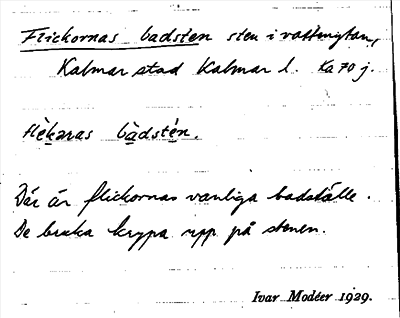 Flickornas badsten sten i vattnytan,
Kalmar stad Kalmar l. Ka 70 j.
flèkəras bàdstén.
Där är flickornas vanliga badställe.
De bruka krypa upp på stenen.
Ivar Modéer 1929.